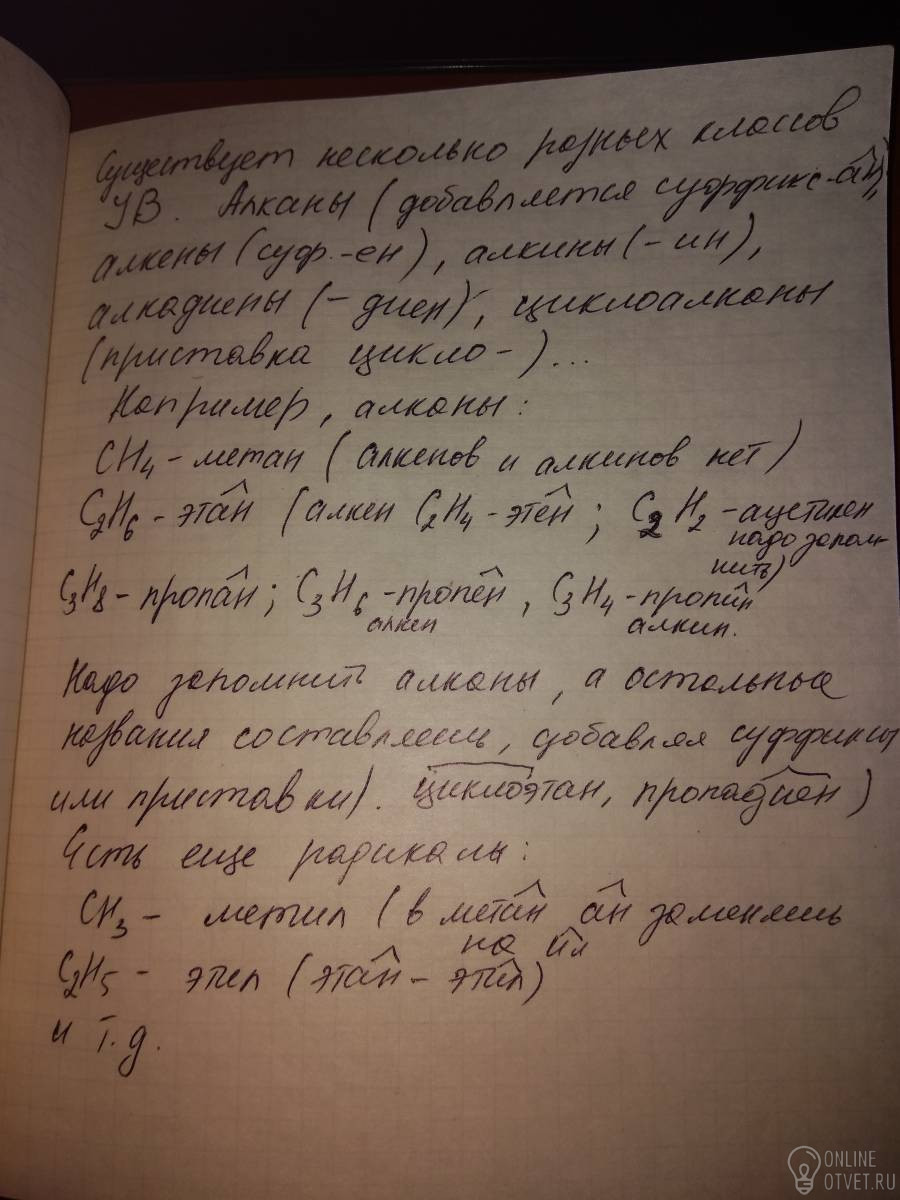 Существует несколько разных классов
УВ. Алканы (добавляется суффикс -ан),
алкены (суф. -ен), алкины (-ин),
алкадиены (-диен), циклоалканы
(приставка цикло-)...
Например, алканы:
CH4 - метан (алкенов и алкинов нет)
C2H6 - этан (алкен C2H4 - этен; C2H2 - ацетилен
надо запом-
нить)
C3H8 - пропан; C3H6 - пропен, C3H4 - пропин
алкен алкин.
Надо запомнить алканы, а остальные
названия составляешь, добавляя суффиксы
или приставки). циклоэтан, пропадиен)
Есть еще радикалы:
CH3 - метил (в метан ан заменяешь
на ил
C2H5 - этил (этан - этил)
и т.д.
ONLINE
OTVET.RU